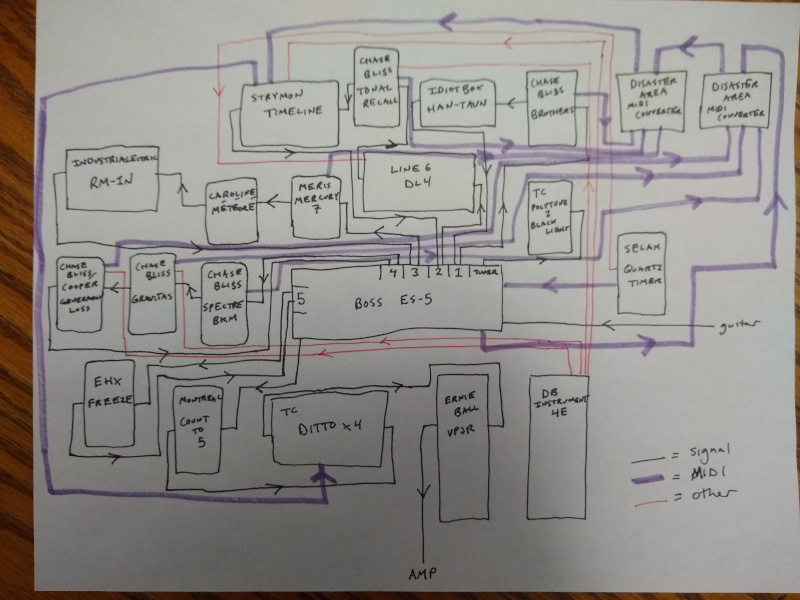 CHASE
BLISS
TONAL
RECALL
STRYMON
TIMELINE
IDIOTBOX
HAN-TAUN
CHASE
BLISS
BROTHERS
DISASTER
AREA
MIDI
CONVERTER
DISASTER
AREA
MIDI
CONVERTER
INDUSTRIALECTRIC
RM-1N
CAROLINE
MÉTÉORE
MERIS
MERCURY
7
LINE 6
DL4
TC
POLYTUNE
3
BLACK
LIGHT
SELAH
QUARTZ
TIMER
CHASE
BLISS/
COOPER
GENERATION
LOSS
CHASE
BLISS
GRAVITAS
CHASE
BLISS
SPECTRE
BKM
4 3 2 1 TUNER
5
BOSS ES-5
guitar
EHX
FREEZE
MONTREAL
COUNT
TO
5
TC
DITTO x4
ERNIE
BALL
VPJR
DB
INSTRUMENT
4E
= signal
= MIDI
= other
AMP